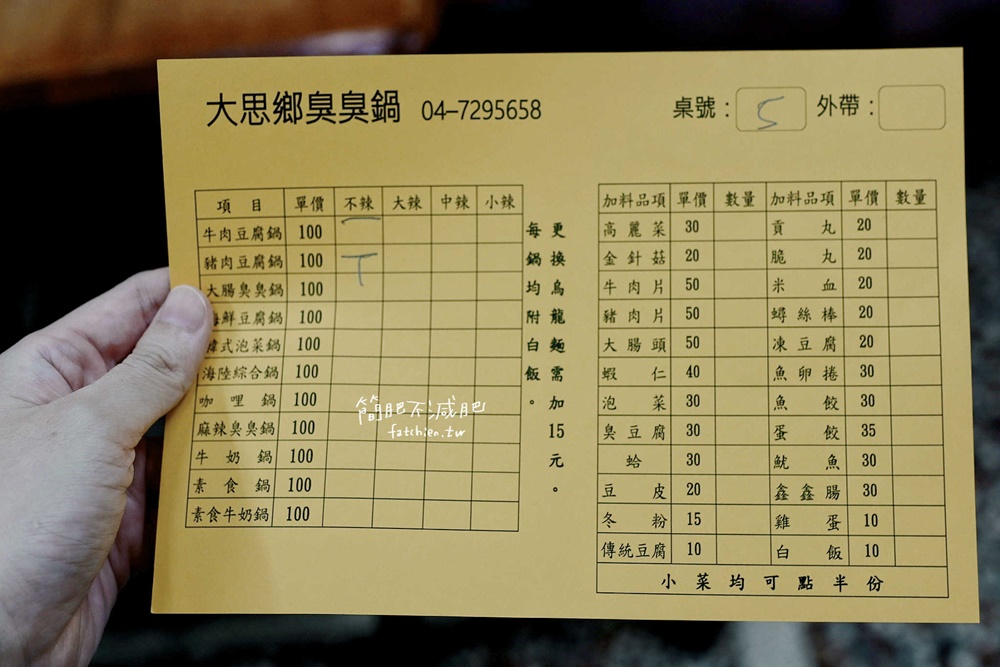 大思鄉臭臭鍋 04-7295658 桌號： 5 外帶：
項目 單價 不辣 大辣 中辣 小辣
牛肉豆腐鍋 100 一
豬肉豆腐鍋 100 T
大腸臭臭鍋 100
海鮮豆腐鍋 100
韓式泡菜鍋 100
海陸綜合鍋 100
咖哩鍋 100
麻辣臭臭鍋 100
牛奶鍋 100
素食鍋 100
素食牛奶鍋 100
更換烏龍麵需加15元。
每鍋均附白飯。
加料品項 單價 數量 加料品項 單價 數量
高麗菜 30 貢丸 20
金針菇 20 脆丸 20
牛肉片 50 米血 20
豬肉片 50 蟳絲棒 20
大腸頭 50 凍豆腐 20
蝦仁 40 魚卵捲 30
泡菜 30 魚餃 30
臭豆腐 30 蛋餃 35
蛤 30 魷魚 30
豆皮 20 鑫鑫腸 30
冬粉 15 雞蛋 10
傳統豆腐 10 白飯 10
小菜均可點半份
簡肥不減肥
fatchien.tw